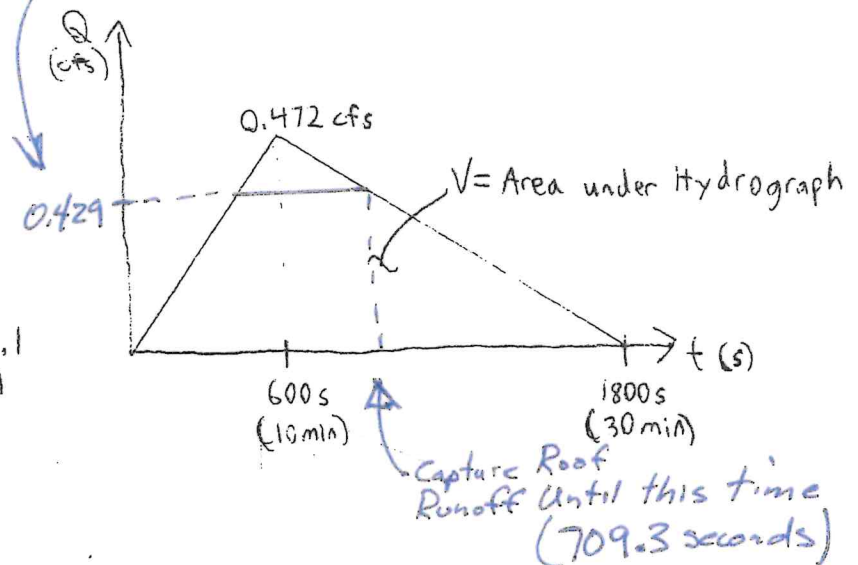 Q
(cfs)
0.472 cfs
V= Area under Hydrograph
0.429
t (s)
600s
(10min)
1800s
(30min)
Capture Roof
Runoff Until this time
(709.3 seconds)